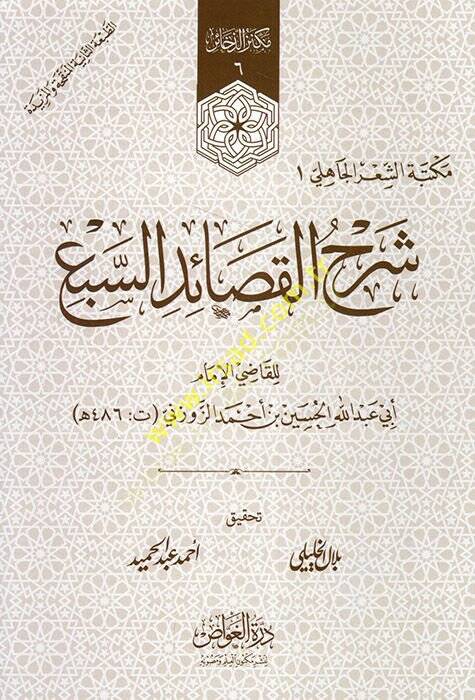 مكتبة الذخائر
٦
الطبعة الثانية المنقحة والمزيدة
مكتبة الشعر الجاهلي ١
شرح القصائد السبع
للقاضي الإمام
أبي عبد الله الحسين بن أحمد الزوزني (ت: ٤٨٦هـ)
تحقيق
بلال الخليلي
أحمد عبد الحميد
درة الغواص
لنشر مكنون العلم ومصونه